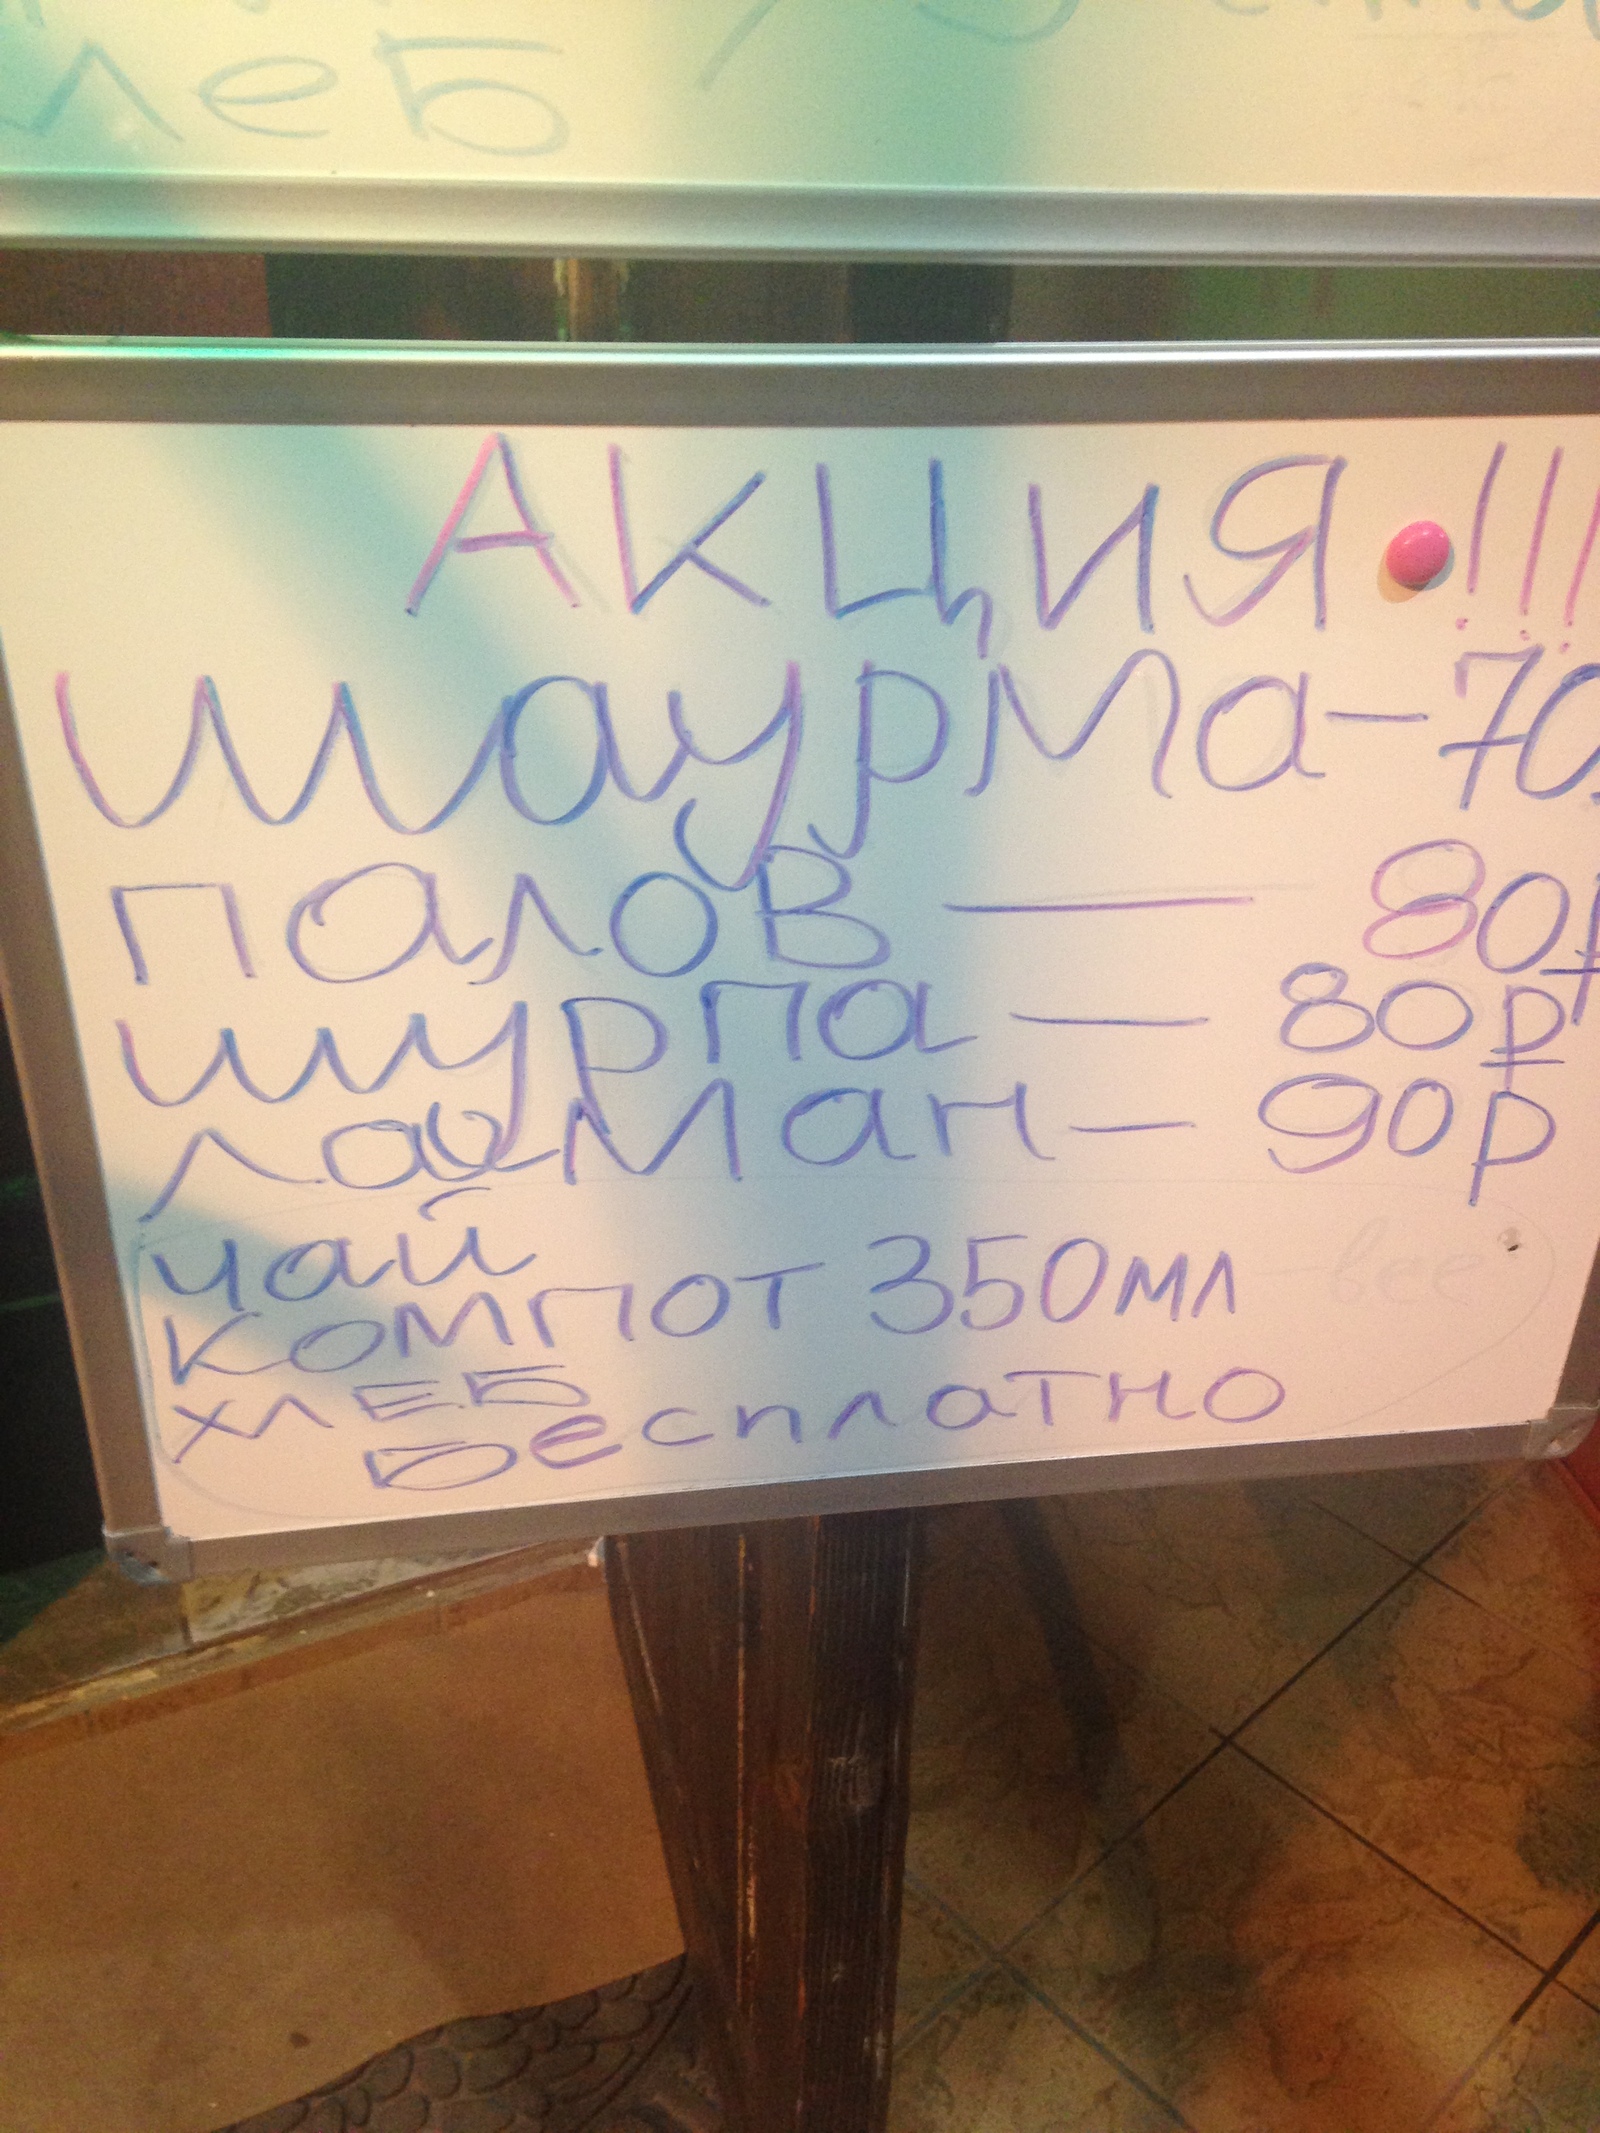 леБ
АКЦИЯ!!!
шаурма-70
палов — 80р
шурпа — 80р
лагман - 90р
чай
компот 350мл
ХЛЕБ
Бесплатно